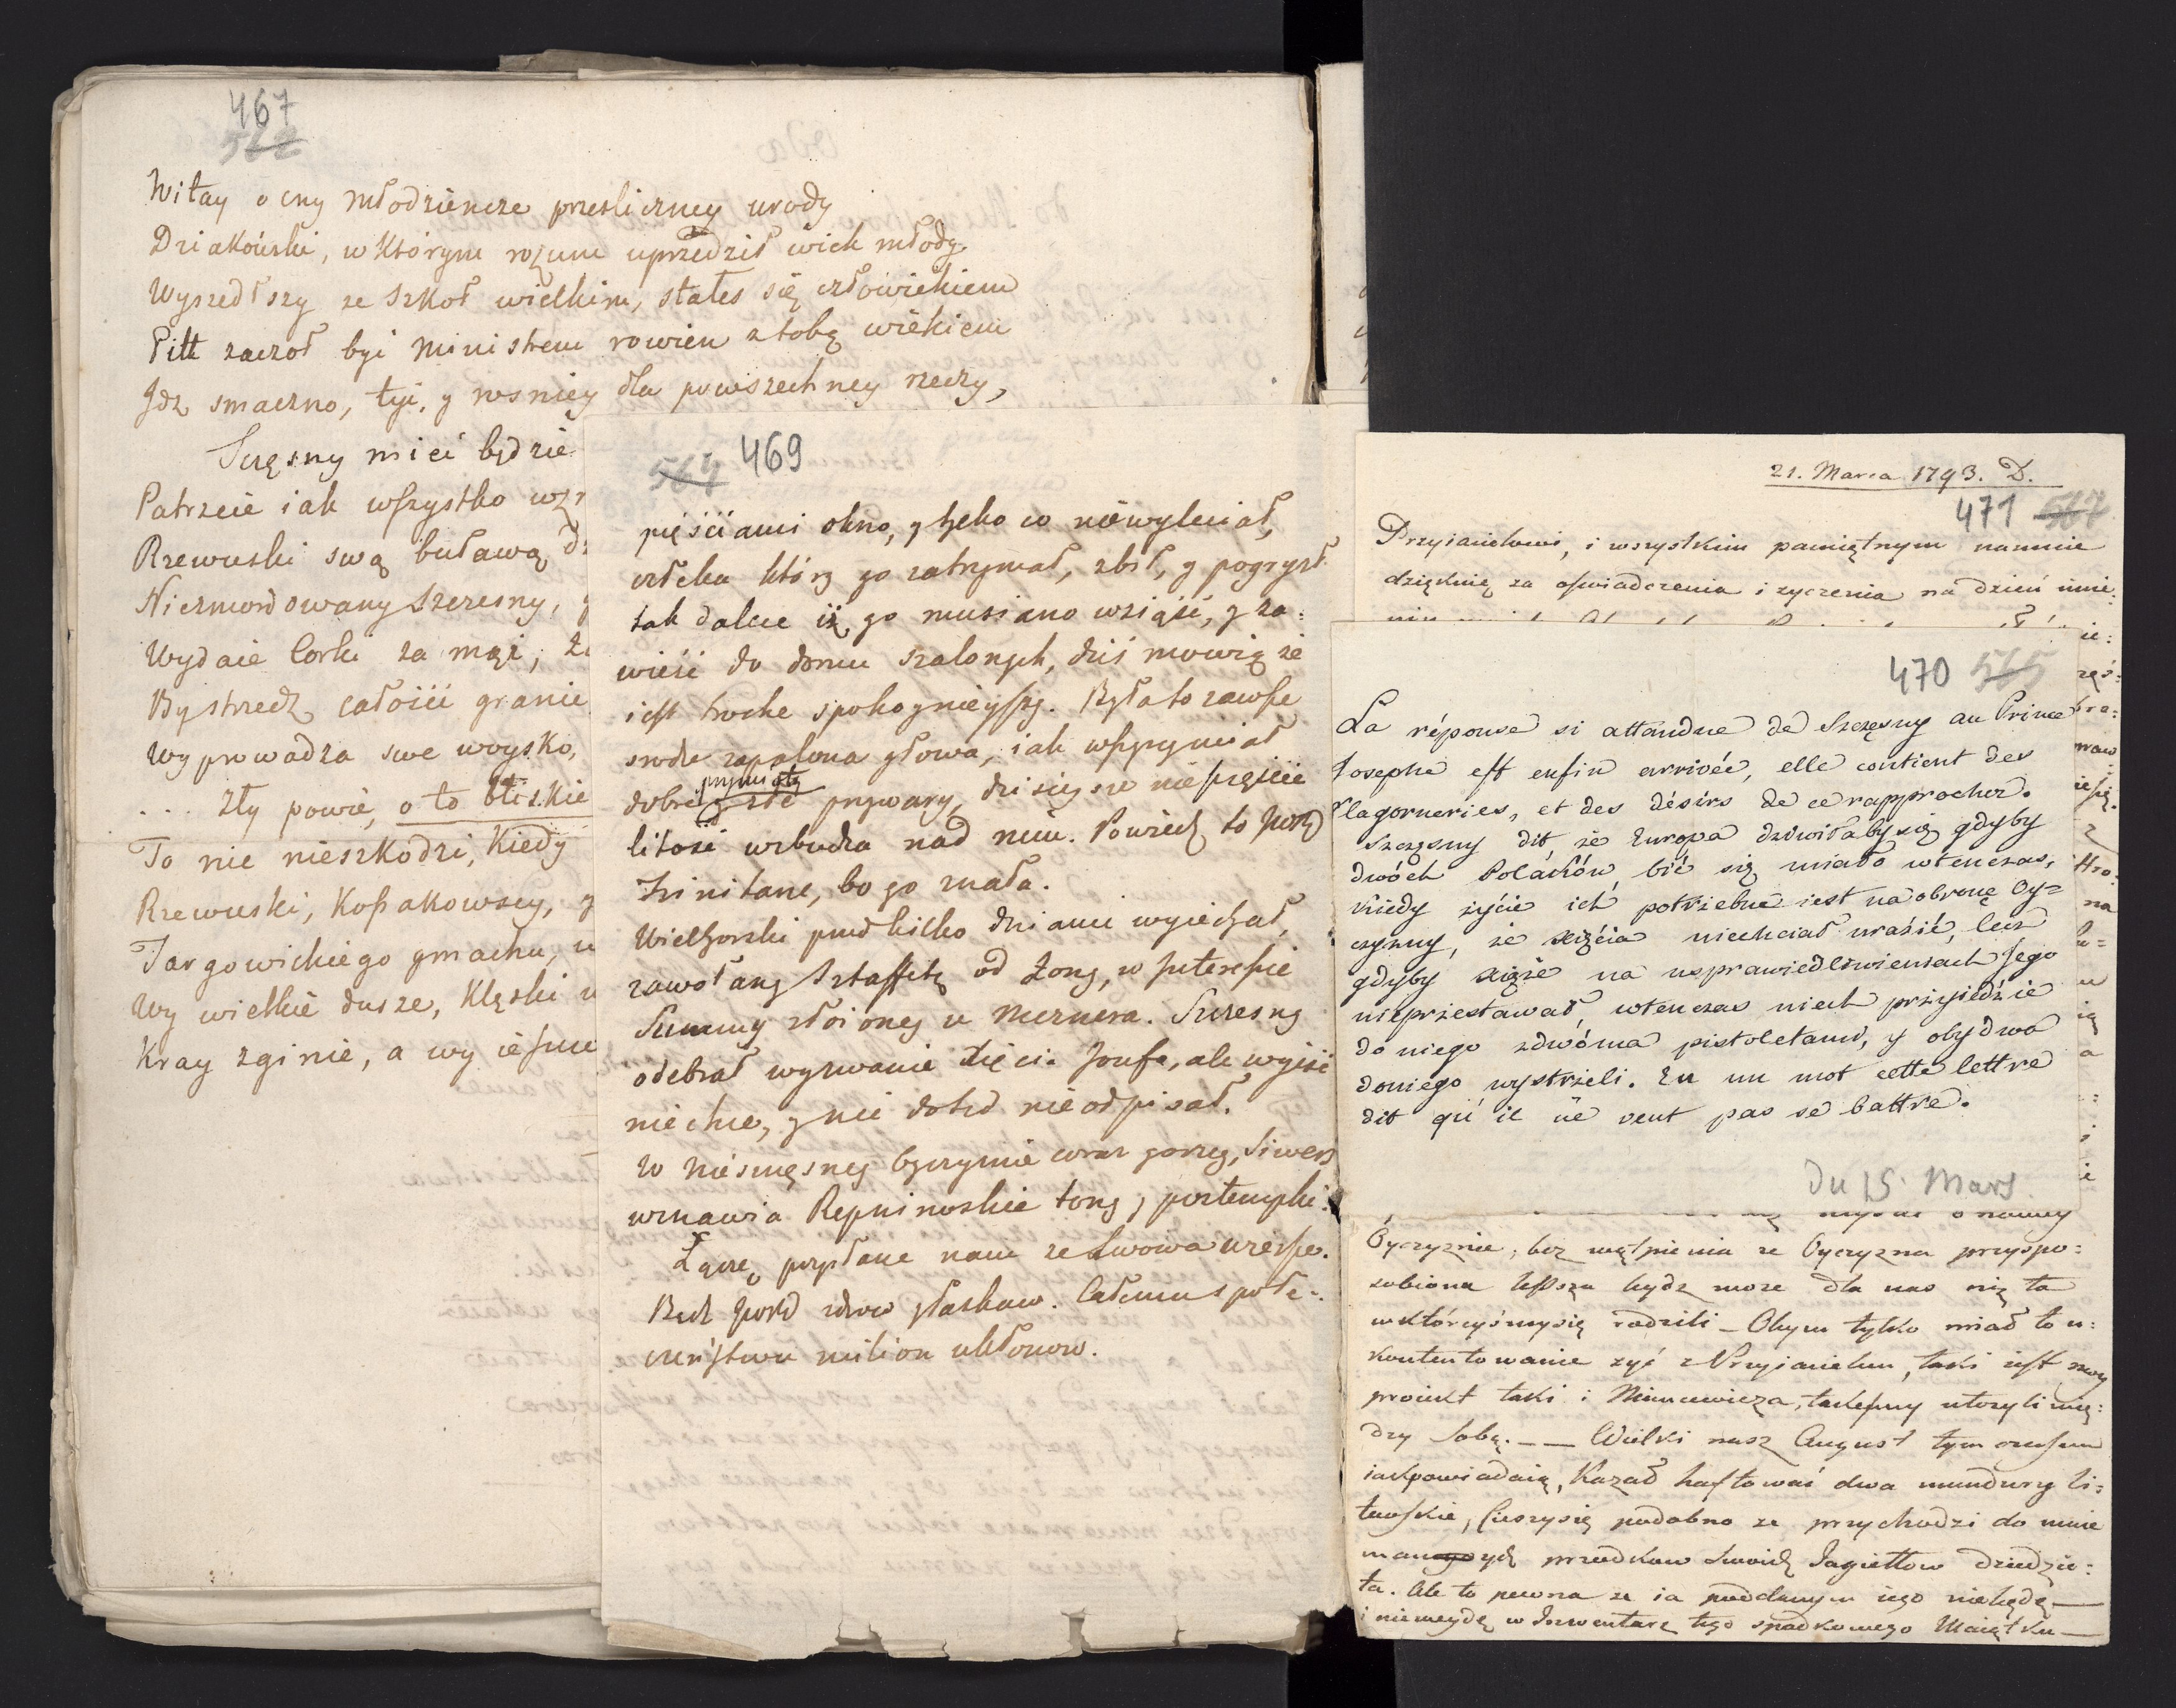 467
562
Witay o cny młodzieńcze presliczney urody
Dziakoński, w którym rozum uprzedził wiek młody
Wyszedł szy ze szkoł wielkim, stałes się człowiekiem
Pitt zaczoł być Ministrem rowien z tobą wiekiem
Jdz smaczno, tyi, y rosniey dla powszechney rzeczy,
Scęsny mieć będzie
Patrzcie iak wszystko wzr
Rzewuski swą buławą dz
Niezmordowany Szczesny, y
Wydaie Corki za mąż, Zo
Bystrzedz całości granic
Wyprowadza swe woysko,
... Zły powie, o to bliskie
To nic nieszkodzi, Kiedy
Rzewuski, Kossakowscy, y
Targowickiego gmachu, w
Wy wielkie dusze, Klęski w
Kray zginie, a wy ieszcze
564 469
pięściami okno, y tylko co niewyleciał,
człeka który go zatrzymał, zbił, y pogryzł
tak dalece iż go musiano wziąść, y za=
wieść do domu szalonych, dziś mowią że
iest troche spokoynieyszy. Była to zawsze
srodze zapalona głowa, iak wspomniał
przymioty
dobre y złe przywary, dzisieysze nieszczęście
litość wzbudza nad nim. Powiedz to JWPD
Trinitane, bo go znała.
Wielhorski przed kilko dniami wyiechał,
zawołany Sztaffetą od Zony, w Jnteressie
Summy złożoney u Meznera. Szczesny
odebrał wyzwanie Xięcia Jozefa, ale wyjść
niechce, y nic dotąd nieodpisał.
W nieszczęsney Oyczyznie coraz gorzey, Siwers
wznawia Repninoskie tony, y postempki.
Łącze przysłane nam ze Lwowa wiersze.
Bądz JWPD zdrow y łaskaw. Całemu społe=
czeństwu milion ukłonow.
21. Marca 1793. D.
471 567
Przyiacielowi, i wszystkim pamiętnym na mnie
dziękuię za oswiadczenia i zyczenia na dzień imie=
470 565
La réponse si attandue de Szczęsny au Prince
Josephe est enfin arrivée, elle contient des
flagorneries, et des désirs de ce rapprocher.
Szczęsny dit że Europa dziwiłaby się gdyby
dwóch Polaków bić się miało wtenczas,
kiedy życie ich potrzebne iest na obronę Oy=
czyzny, że Xięcia niechciał urazić, lecz
gdyby Xiąże na usprawiedliwieniach Jego
nieprzestawał, wtenczas niech przyiedzie
do niego z dwóma pistoletami, y obydwa
doniego wystrzeli. En un mot cette lettre
dit qu'il ne veut pas se battre.
Du 15. Mars
Oyczyznie, bez wątpienia ze Oyczyzna przyspo=
sobiona lepsza bydz moze dla nas niz ta
wktórcyśmysię rodzili - Obym tylko miał to u=
kontentowanie zyć z Przyiacielem, taki iest moy
proiekt taki i Niemcewicza, takesmy ułozyli mię=
dzy sobą. -- Wielki nasz August tym czasem
iakpowiadaią, Kazał haftować dwa mundury li=
tewskie, Cieszysię podobno ze przychodzi do
przodkow swoich Jagiełłow dziedzic=
ta. Ale to pewna ze ia poddanym iego niebędę —
i nieweydę w Jnwentarz tego spadkowego Maiątku —